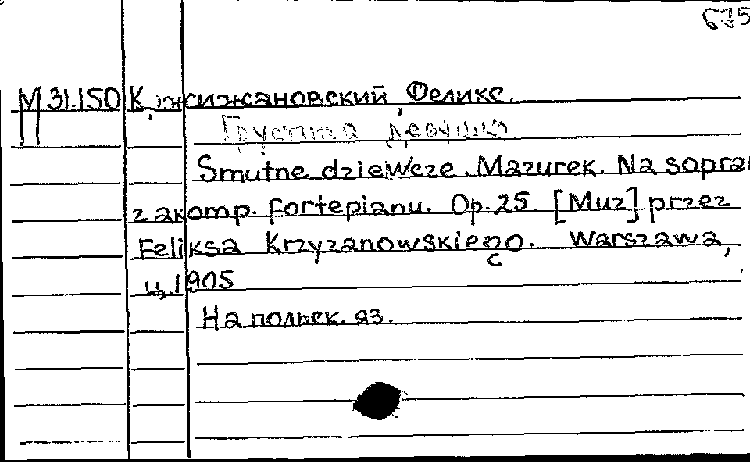 675
М 31.150 Кжижановский, Феликс.
Грустная девушка
Smutne dziewcze. Mazurek. Na sopran
z akomp. fortepianu. Op. 25 [Muz] przez
Feliksa Krzyzanowskiego. Warszawa,
ц. 1905
На польск. яз.